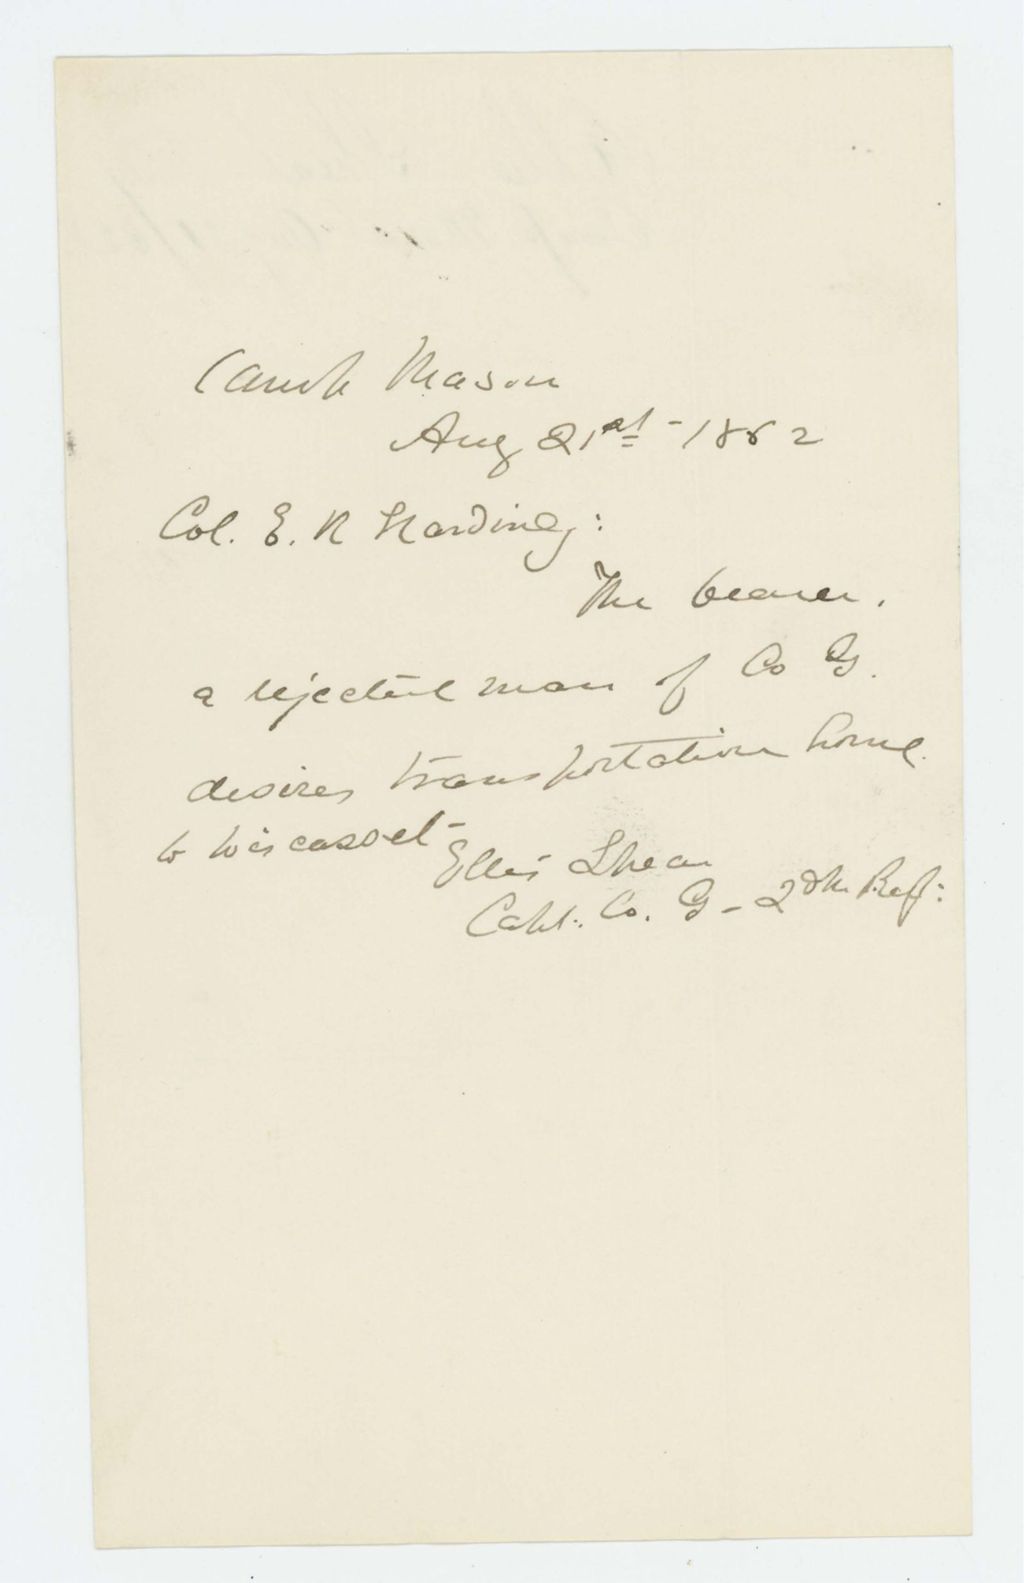 Camp Mason
Aug 21st - 1862
Col. E. R Harding:
The bearer,
a rejected man of Co G.
desires transportation home.
to Wiscasset -
Ellis Spear
Capt. Co. G - 20th Regt: